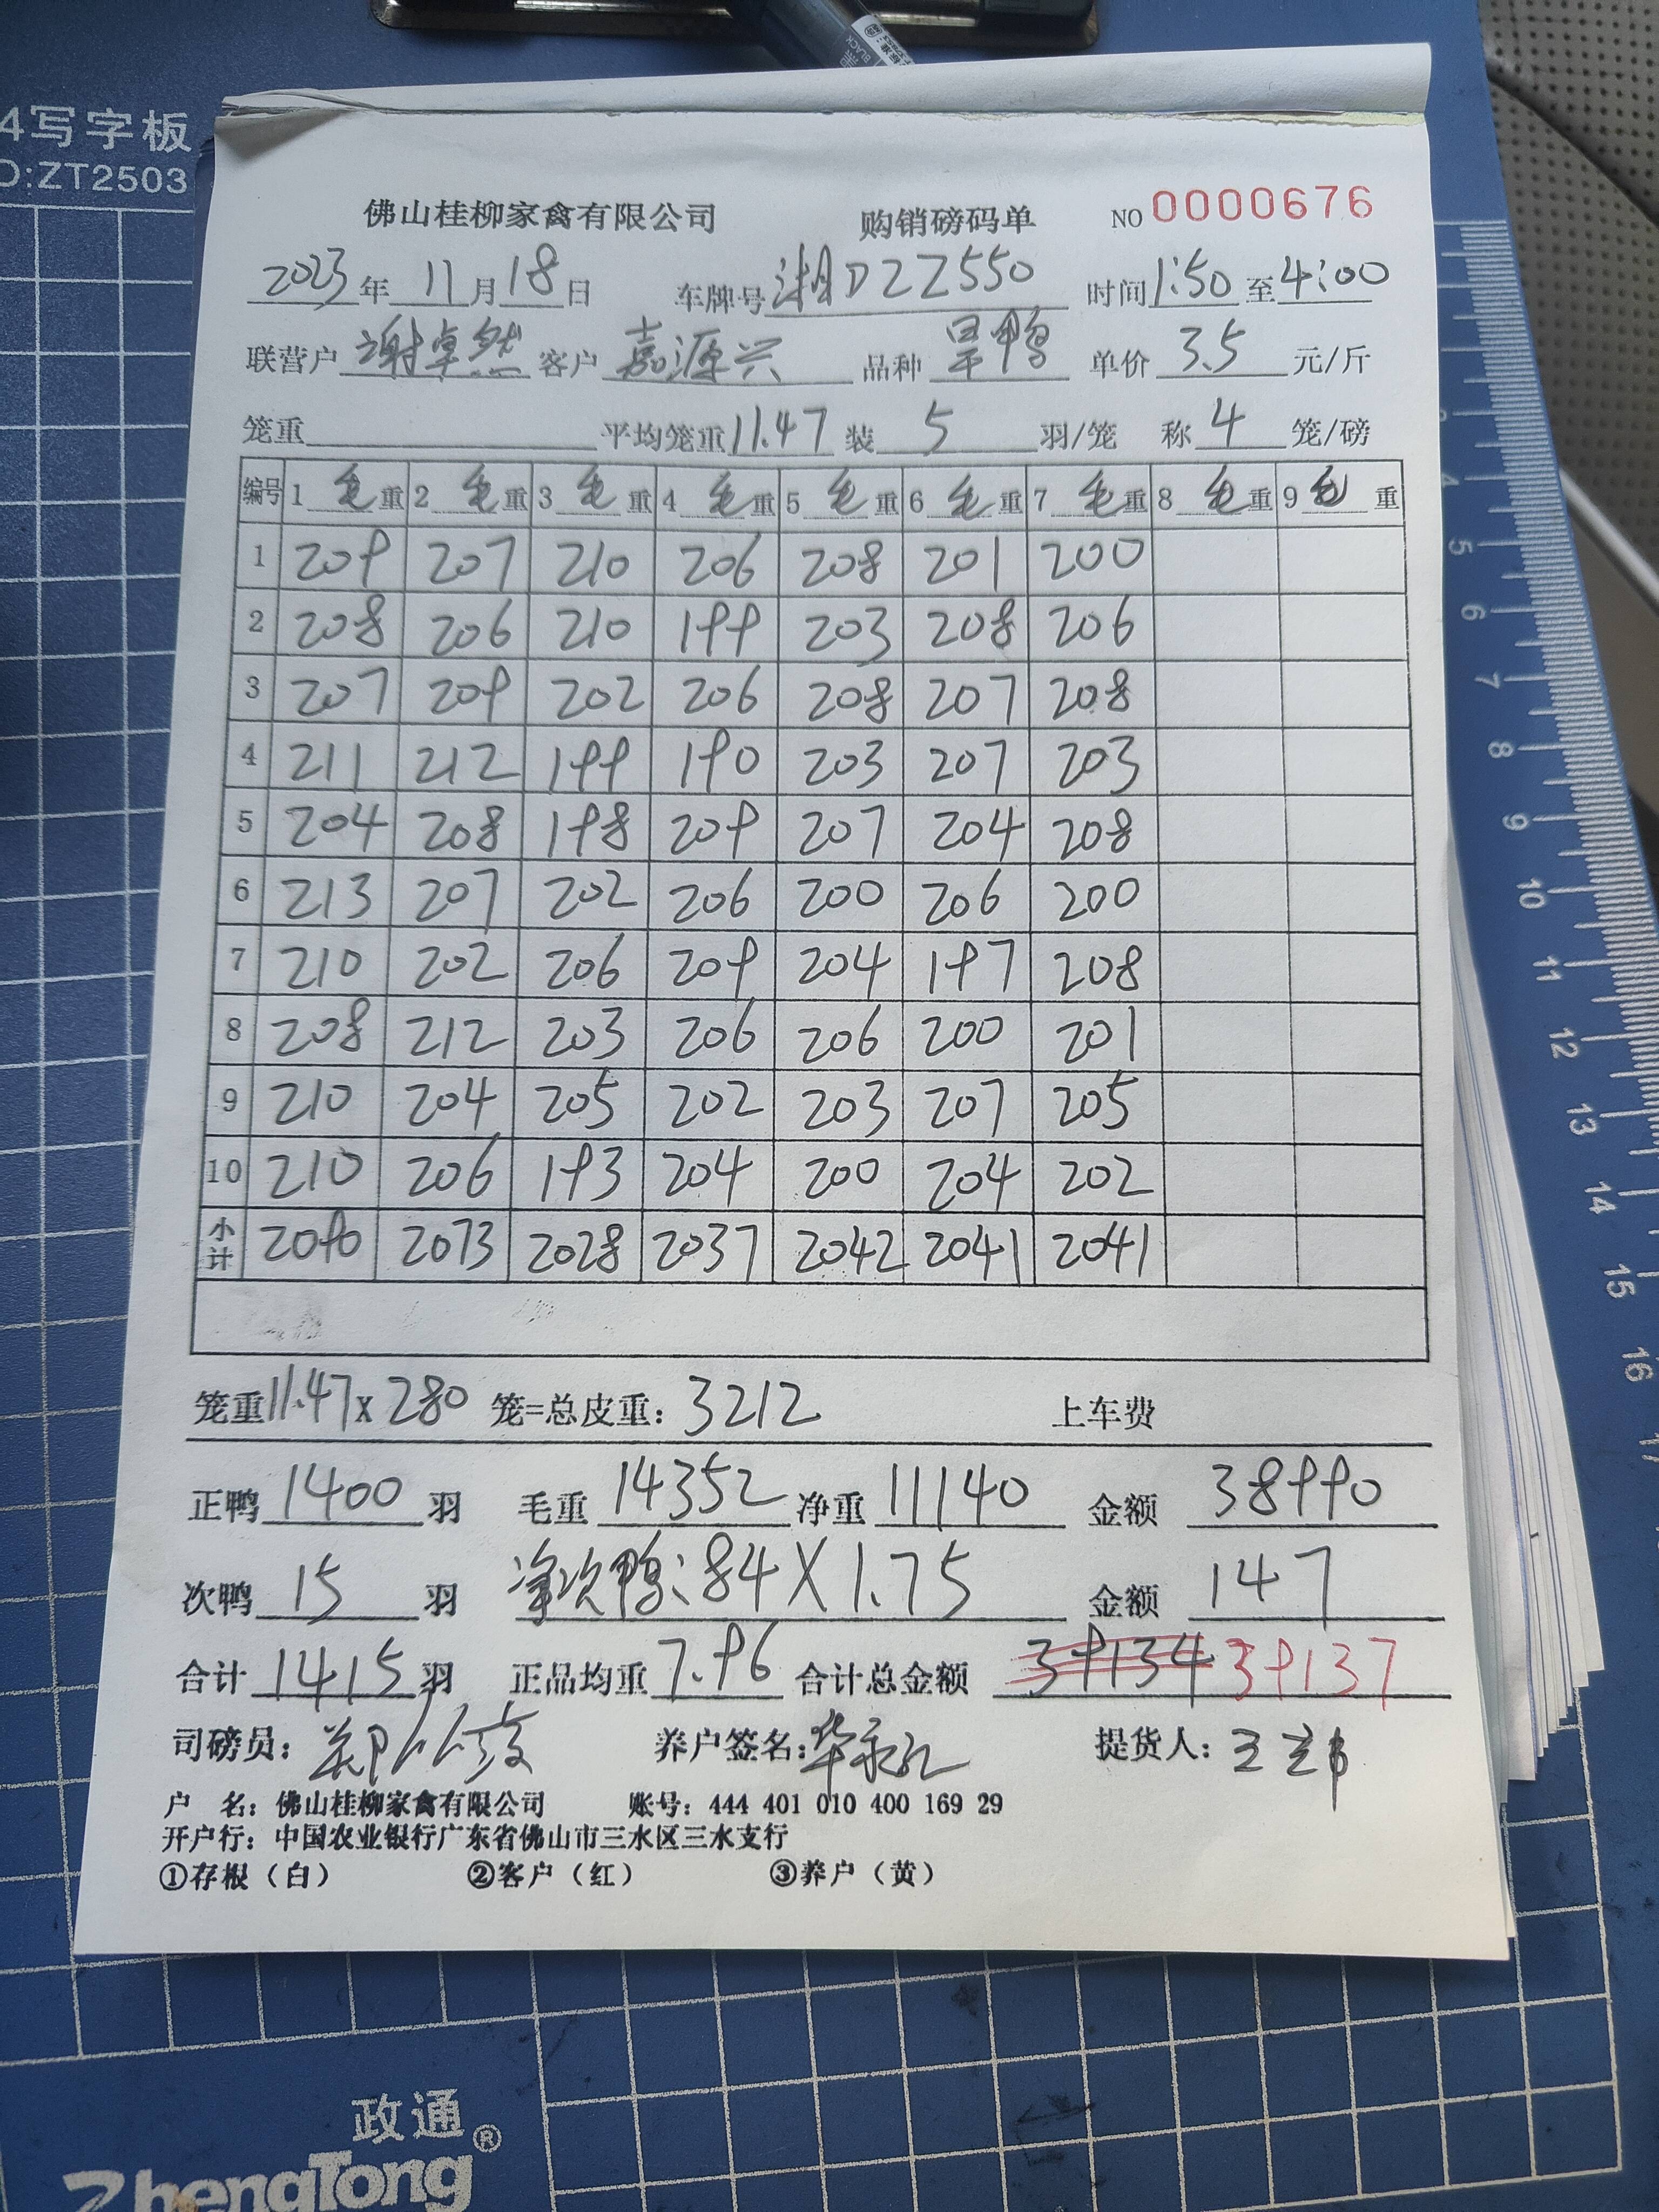 4写字板
D:ZT2503
BLACK
佛山桂柳家禽有限公司 购销磅码单 NO 0000676
2023年11月18日 车牌号湘DZZ550 时间1:50至4:00
联营户谢卓然 客户嘉源兴 品种呈鸭 单价3.5元/斤
笼重 平均笼重11.47 装5羽/笼 称4笼/磅
编号 1毛重 2毛重 3毛重 4毛重 5毛重 6毛重 7毛重 8毛重 9毛重
1 209 207 210 206 208 201 200
2 208 206 210 199 203 208 206
3 207 209 202 206 208 207 208
4 211 212 199 190 203 207 203
5 204 208 198 209 207 204 208
6 213 207 202 206 200 206 200
7 210 202 206 209 204 197 208
8 208 212 203 206 206 200 201
9 210 204 205 202 203 207 205
10 210 206 193 204 200 204 202
小计 2090 2073 2028 2037 2042 2041 2041
笼重11.47x280笼=总皮重:3212 上车费
正鸭1400羽 毛重14352 净重11140 金额38990
次鸭15羽 净次鸭:84X1.75 金额147
合计1415羽 正品均重7.96 合计总金额 39134 39137
司磅员: 养户签名: 提货人:
户 名:佛山桂柳家禽有限公司 账号:444 401 010 400 169 29
开户行:中国农业银行广东省佛山市三水区三水支行
①存根(白) ②客户(红) ③养户(黄)
5
6
7
8
9
10
11
12
13
14
15
16
政通®
ZhengTong